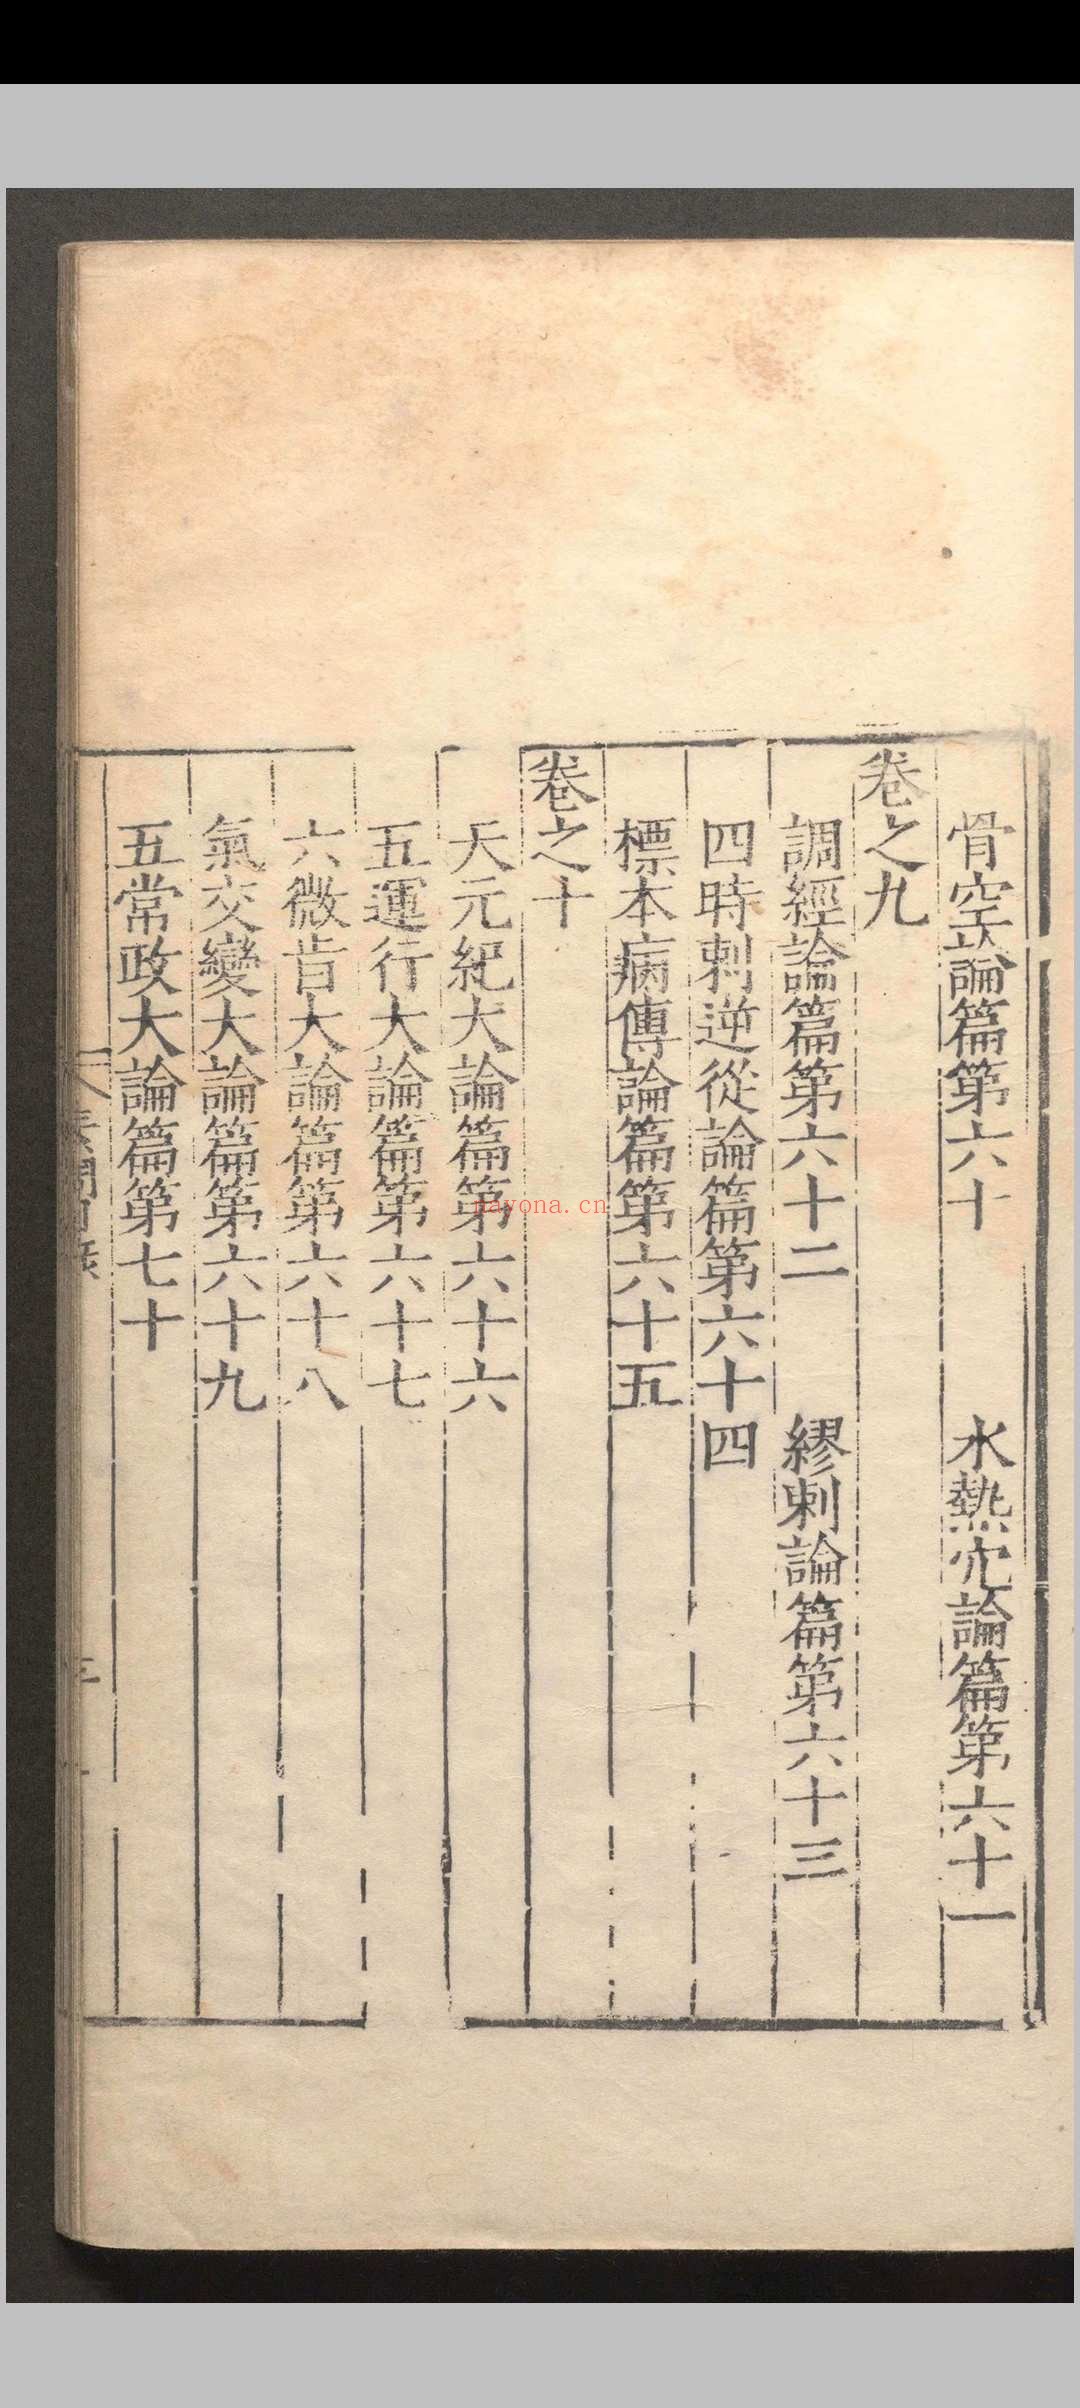 骨空論篇第六十　水熱穴論篇第六十一
卷之九
調經論篇第六十二　繆刺論篇第六十三
四時刺逆從論篇第六十四
標本病傳論篇第六十五
卷之十
天元紀大論篇第六十六
五運行大論篇第六十七
六微旨大論篇第六十八
氣交變大論篇第六十九
五常政大論篇第七十
nayona.cn